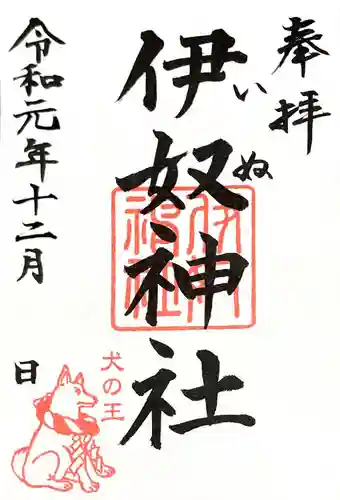 奉拝
伊奴神社
いぬ
令和元年十二月 日
犬の王